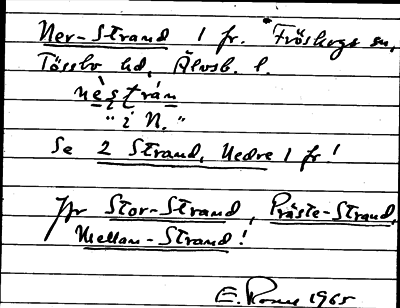 Ner-Strand 1 fr. Fröskogs sn,
Tössbo hd, Älvsb. l.
nèstrán
"i N."
Se 2 Strand, Nedre 1 fr!
Jfr Stor-Strand, Präste-Strand,
Mellan-Strand!
E. 1965